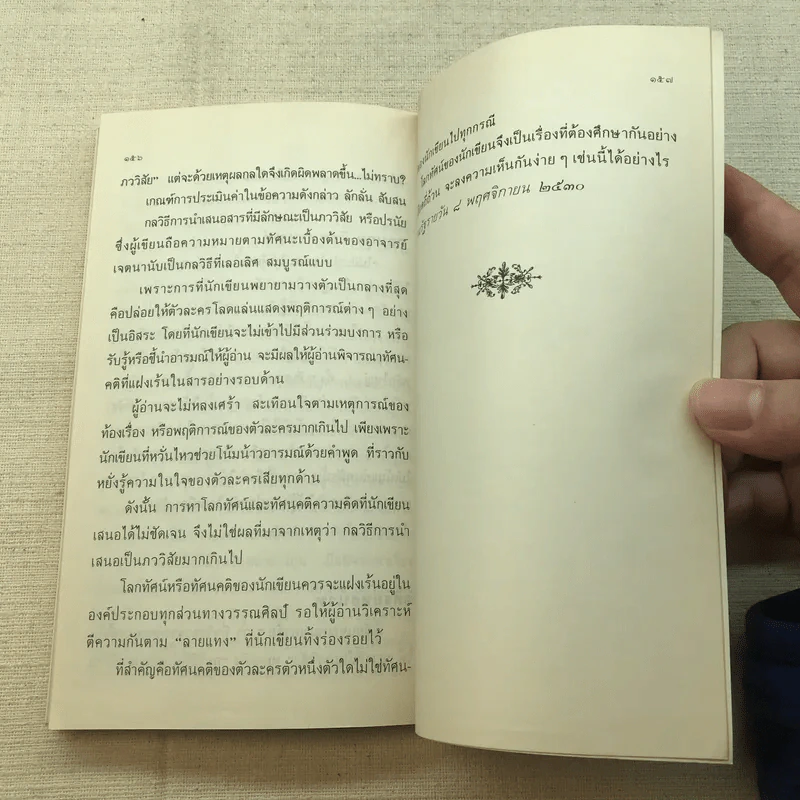 ๑๕๖
ภววิสัย” แต่จะด้วยเหตุผลกลใดจึงเกิดผิดพลาดขึ้น...ไม่ทราบ?
เกณฑ์การประเมินค่าในข้อความดังกล่าว ลักลั่น สับสน
กลวิธีการนำเสนอสารที่มีลักษณะเป็นภววิสัย หรือปรนัย
ซึ่งผู้เขียนถือความหมายตามทัศนะเบื้องต้นของอาจารย์
เจตนานับเป็นกลวิธีที่เลอเลิศ สมบูรณ์แบบ
เพราะการที่นักเขียนพยายามวางตัวเป็นกลางที่สุด
คือปล่อยให้ตัวละครโลดแล่นแสดงพฤติการณ์ต่าง ๆ อย่าง
เป็นอิสระ โดยที่นักเขียนจะไม่เข้าไปมีส่วนร่วมบงการ หรือ
รับรู้หรือชี้นำอารมณ์ให้ผู้อ่าน จะมีผลให้ผู้อ่านพิจารณาทัศน-
คติที่แฝงเร้นในสารอย่างรอบด้าน
ผู้อ่านจะไม่หลงเศร้า สะเทือนใจตามเหตุการณ์ของ
ท้องเรื่อง หรือพฤติการณ์ของตัวละครมากเกินไป เพียงเพราะ
นักเขียนที่หวั่นไหวช่วยโน้มน้าวอารมณ์ด้วยคำพูด ที่ราวกับ
หยั่งรู้ความในใจของตัวละครเสียทุกด้าน
ดังนั้น การหาโลกทัศน์และทัศนคติความคิดที่นักเขียน
เสนอได้ไม่ชัดเจน จึงไม่ใช่ผลที่มาจากเหตุว่า กลวิธีการนำ
เสนอเป็นภววิสัยมากเกินไป
โลกทัศน์หรือทัศนคติของนักเขียนควรจะแฝงเร้นอยู่ใน
องค์ประกอบทุกส่วนทางวรรณศิลป์ รอให้ผู้อ่านวิเคราะห์
ตีความกันตาม “ลายแทง” ที่นักเขียนทิ้งร่องรอยไว้
ที่สำคัญคือทัศนคติของตัวละครตัวหนึ่งตัวใดไม่ใช่ทัศน-
๑๕๗
ของนักเขียนไปทุกกรณี
โลกทัศน์ของนักเขียนจึงเป็นเรื่องที่ต้องศึกษากันอย่าง
จะลงความเห็นกันง่าย ๆ เช่นนี้ได้อย่างไร
๘ พฤศจิกายน ๒๕๓๐